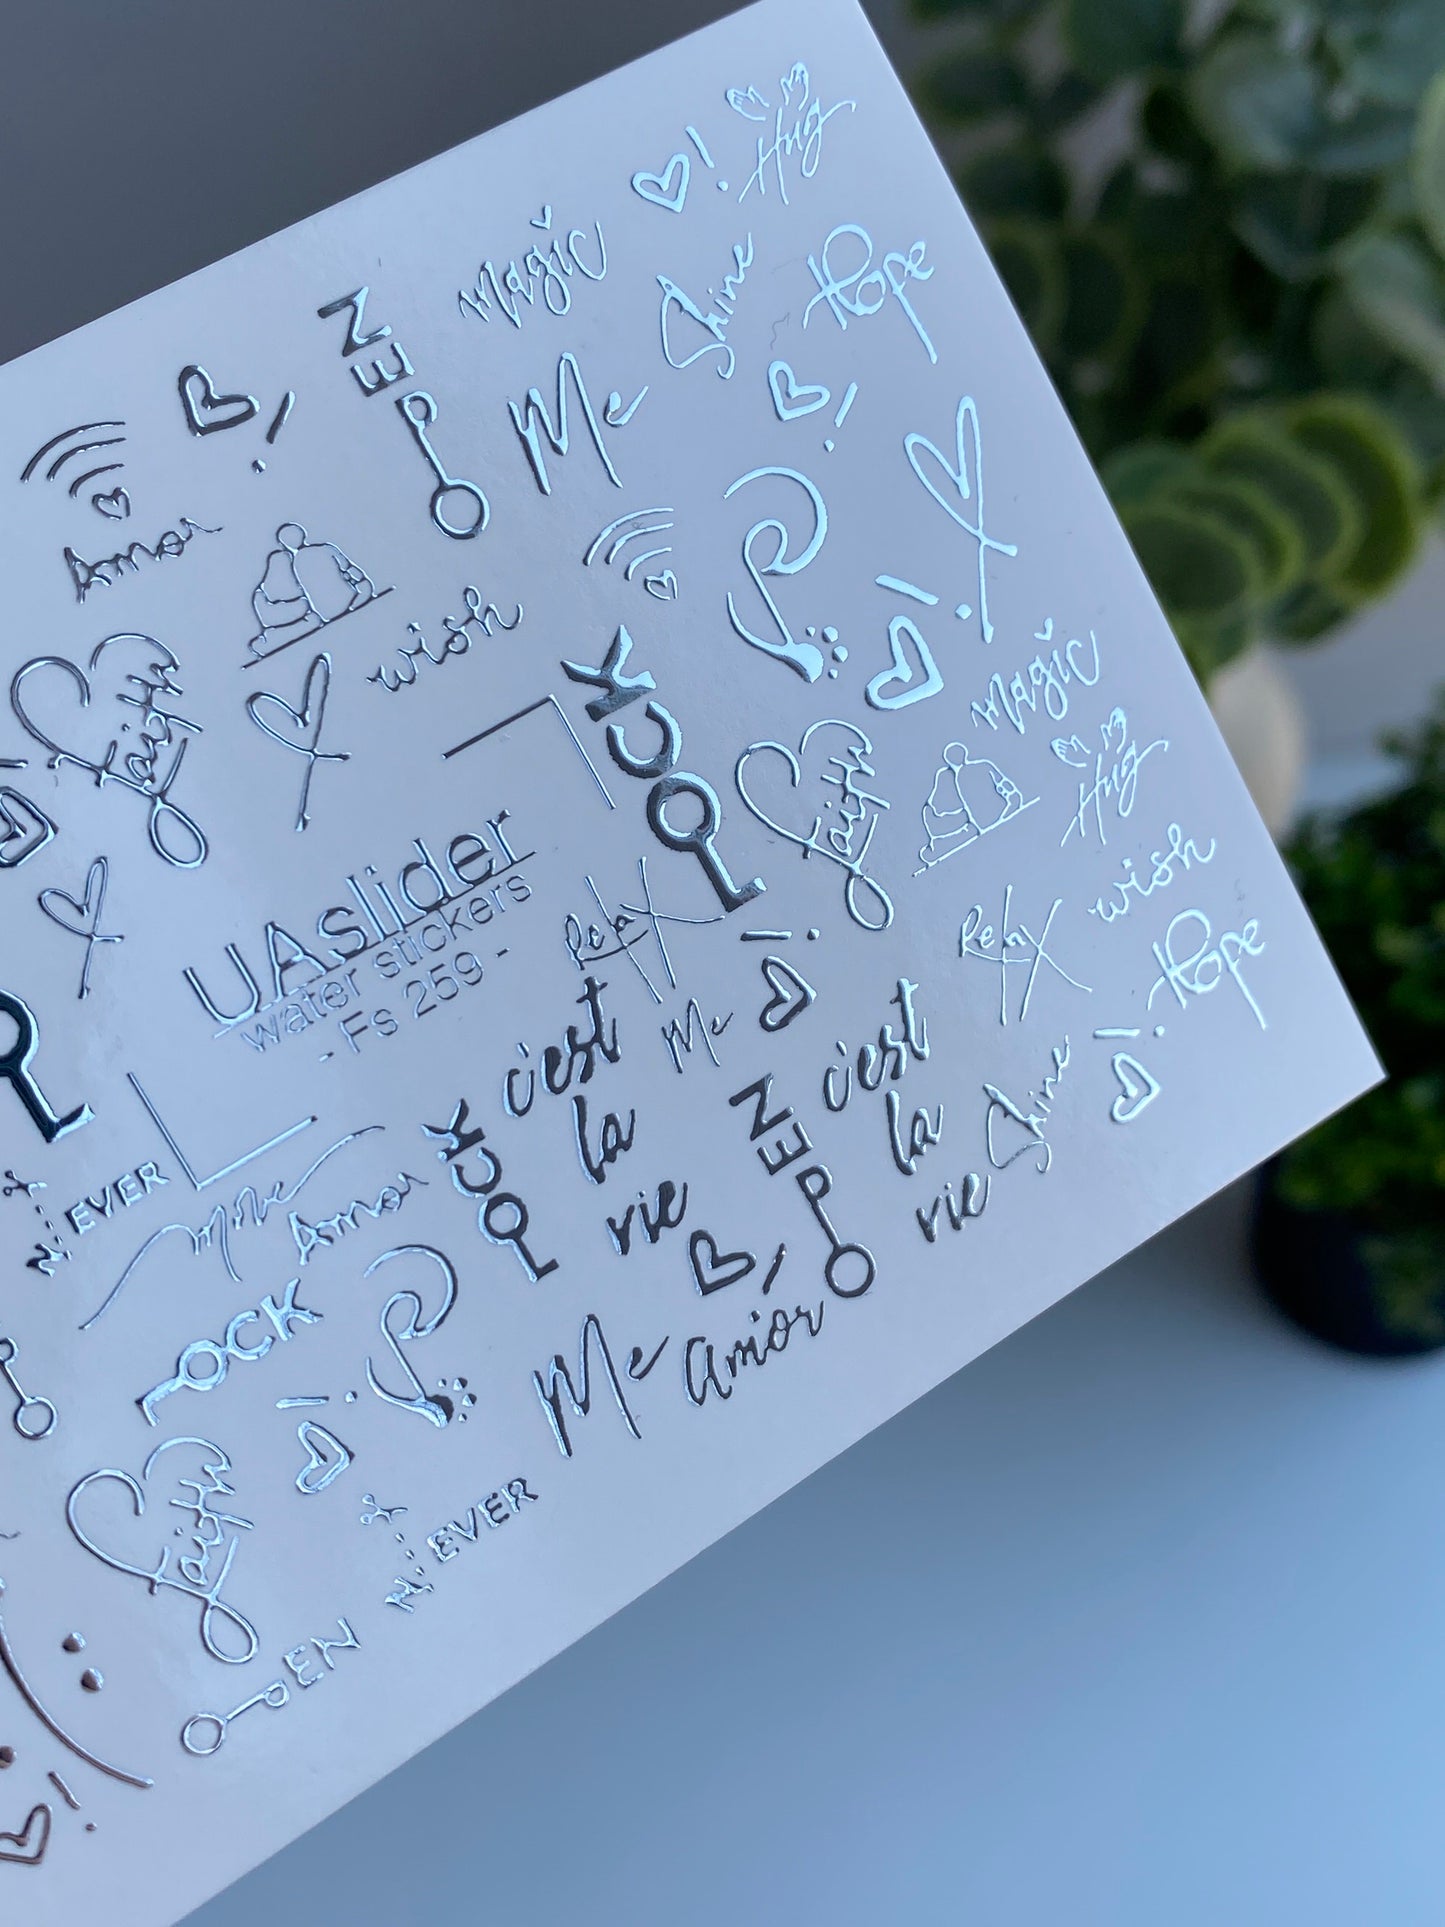 Hug
!
magic
Shine
Hope
OPEN
!
Me
!
Amor
wish
Faith
LOCK
!
magic
Hug
Faith
wish
UAslider
water stickers
- Fs 259 -
Relax
Relax
Hope
!
Me
Shine
!
c'est
la
vie
c'est
la
vie
LOCK
OPEN
NEVER
move
Amor
LOCK
!
Me
!
Amor
!
Faith
NEVER
OPEN
!